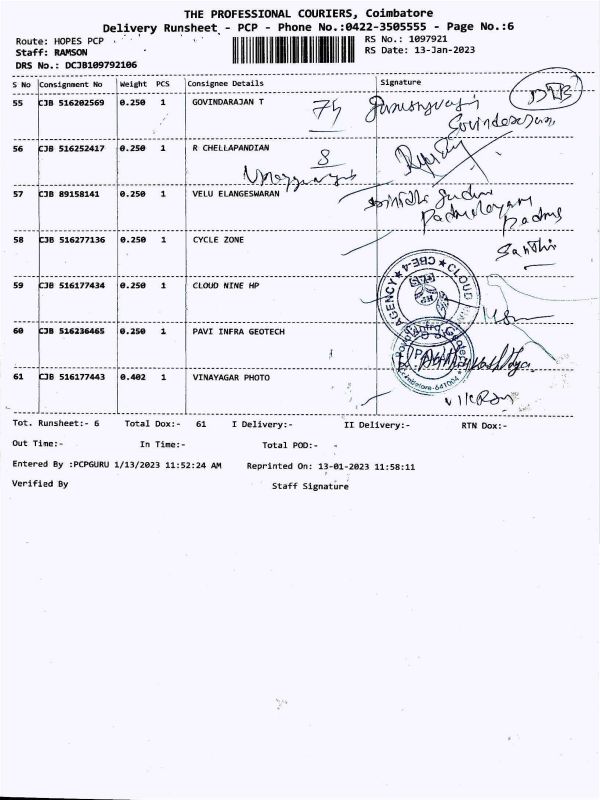 THE PROFESSIONAL COURIERS, Coimbatore
Delivery Runsheet - PCP - Phone No.:0422-3505555 - Page No.:6
Route: HOPES PCP
RS No.: 1097921
Staff: RAMSON
RS Date: 13-Jan-2023
DRS No.: DCJB109792106
S No Consignment No Weight PCS Consignee Details Signature
55 CJB 516202569 0.250 1 GOVINDARAJAN T
56 CJB 516252417 0.250 1 R CHELLAPANDIAN
8
57 CJB 89158141 0.250 1 VELU ELANGESWARAN
58 CJB 516277136 0.250 1 CYCLE ZONE
Santhi
59 CJB 516177434 0.250 1 CLOUD NINE HP
AGENCY ★ CBE-4 ★ CLOUD
HP
60 CJB 516236465 0.250 1 PAVI INFRA GEOTECH
61 CJB 516177443 0.402 1 VINAYAGAR PHOTO
Tot. Runsheet:- 6 Total Dox:- 61 I Delivery:- II Delivery:- RTN Dox:-
Out Time:- In Time:- Total POD:- -
Entered By :PCPGURU 1/13/2023 11:52:24 AM Reprinted On: 13-01-2023 11:58:11
Verified By Staff Signature